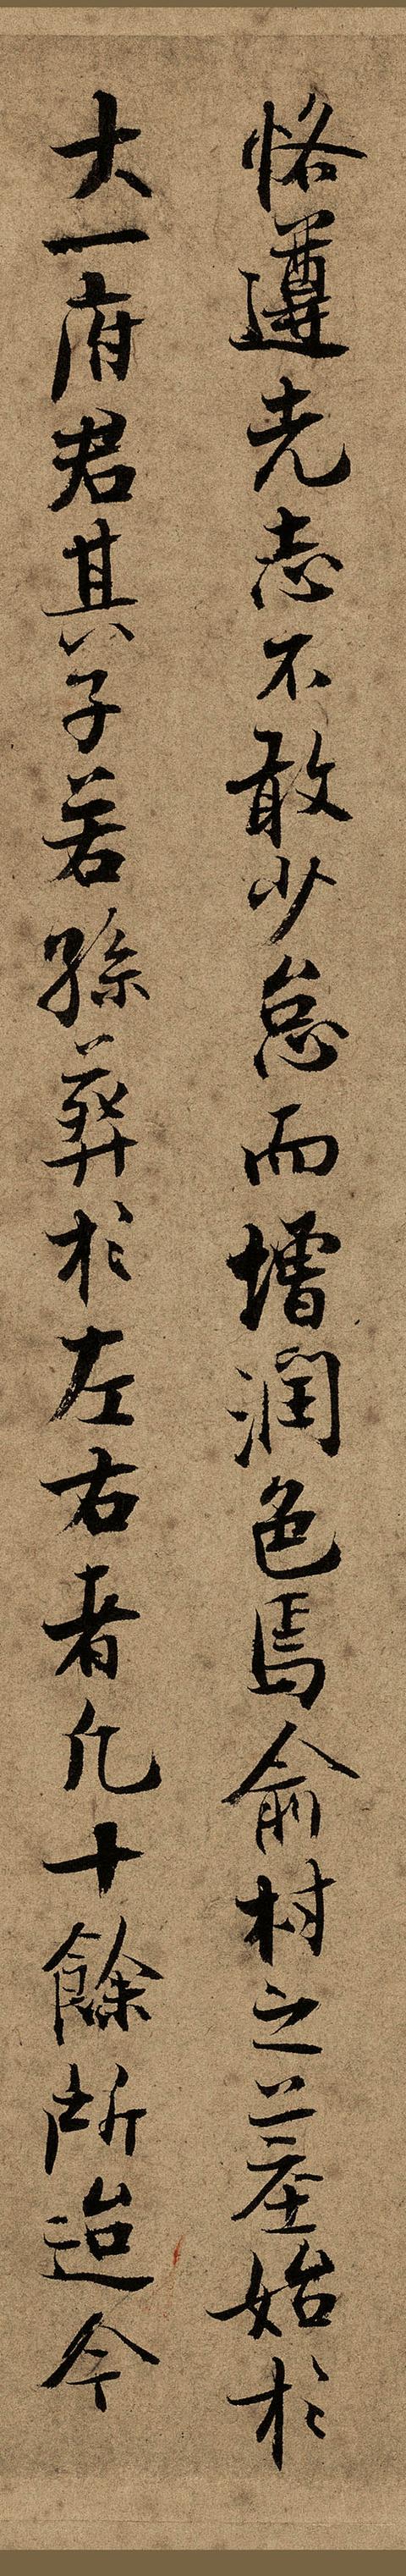 恪遵先志不敢少怠而增潤色焉俞村之墓始於
大一府君其子若孫葬於左右者凡十餘所迨今